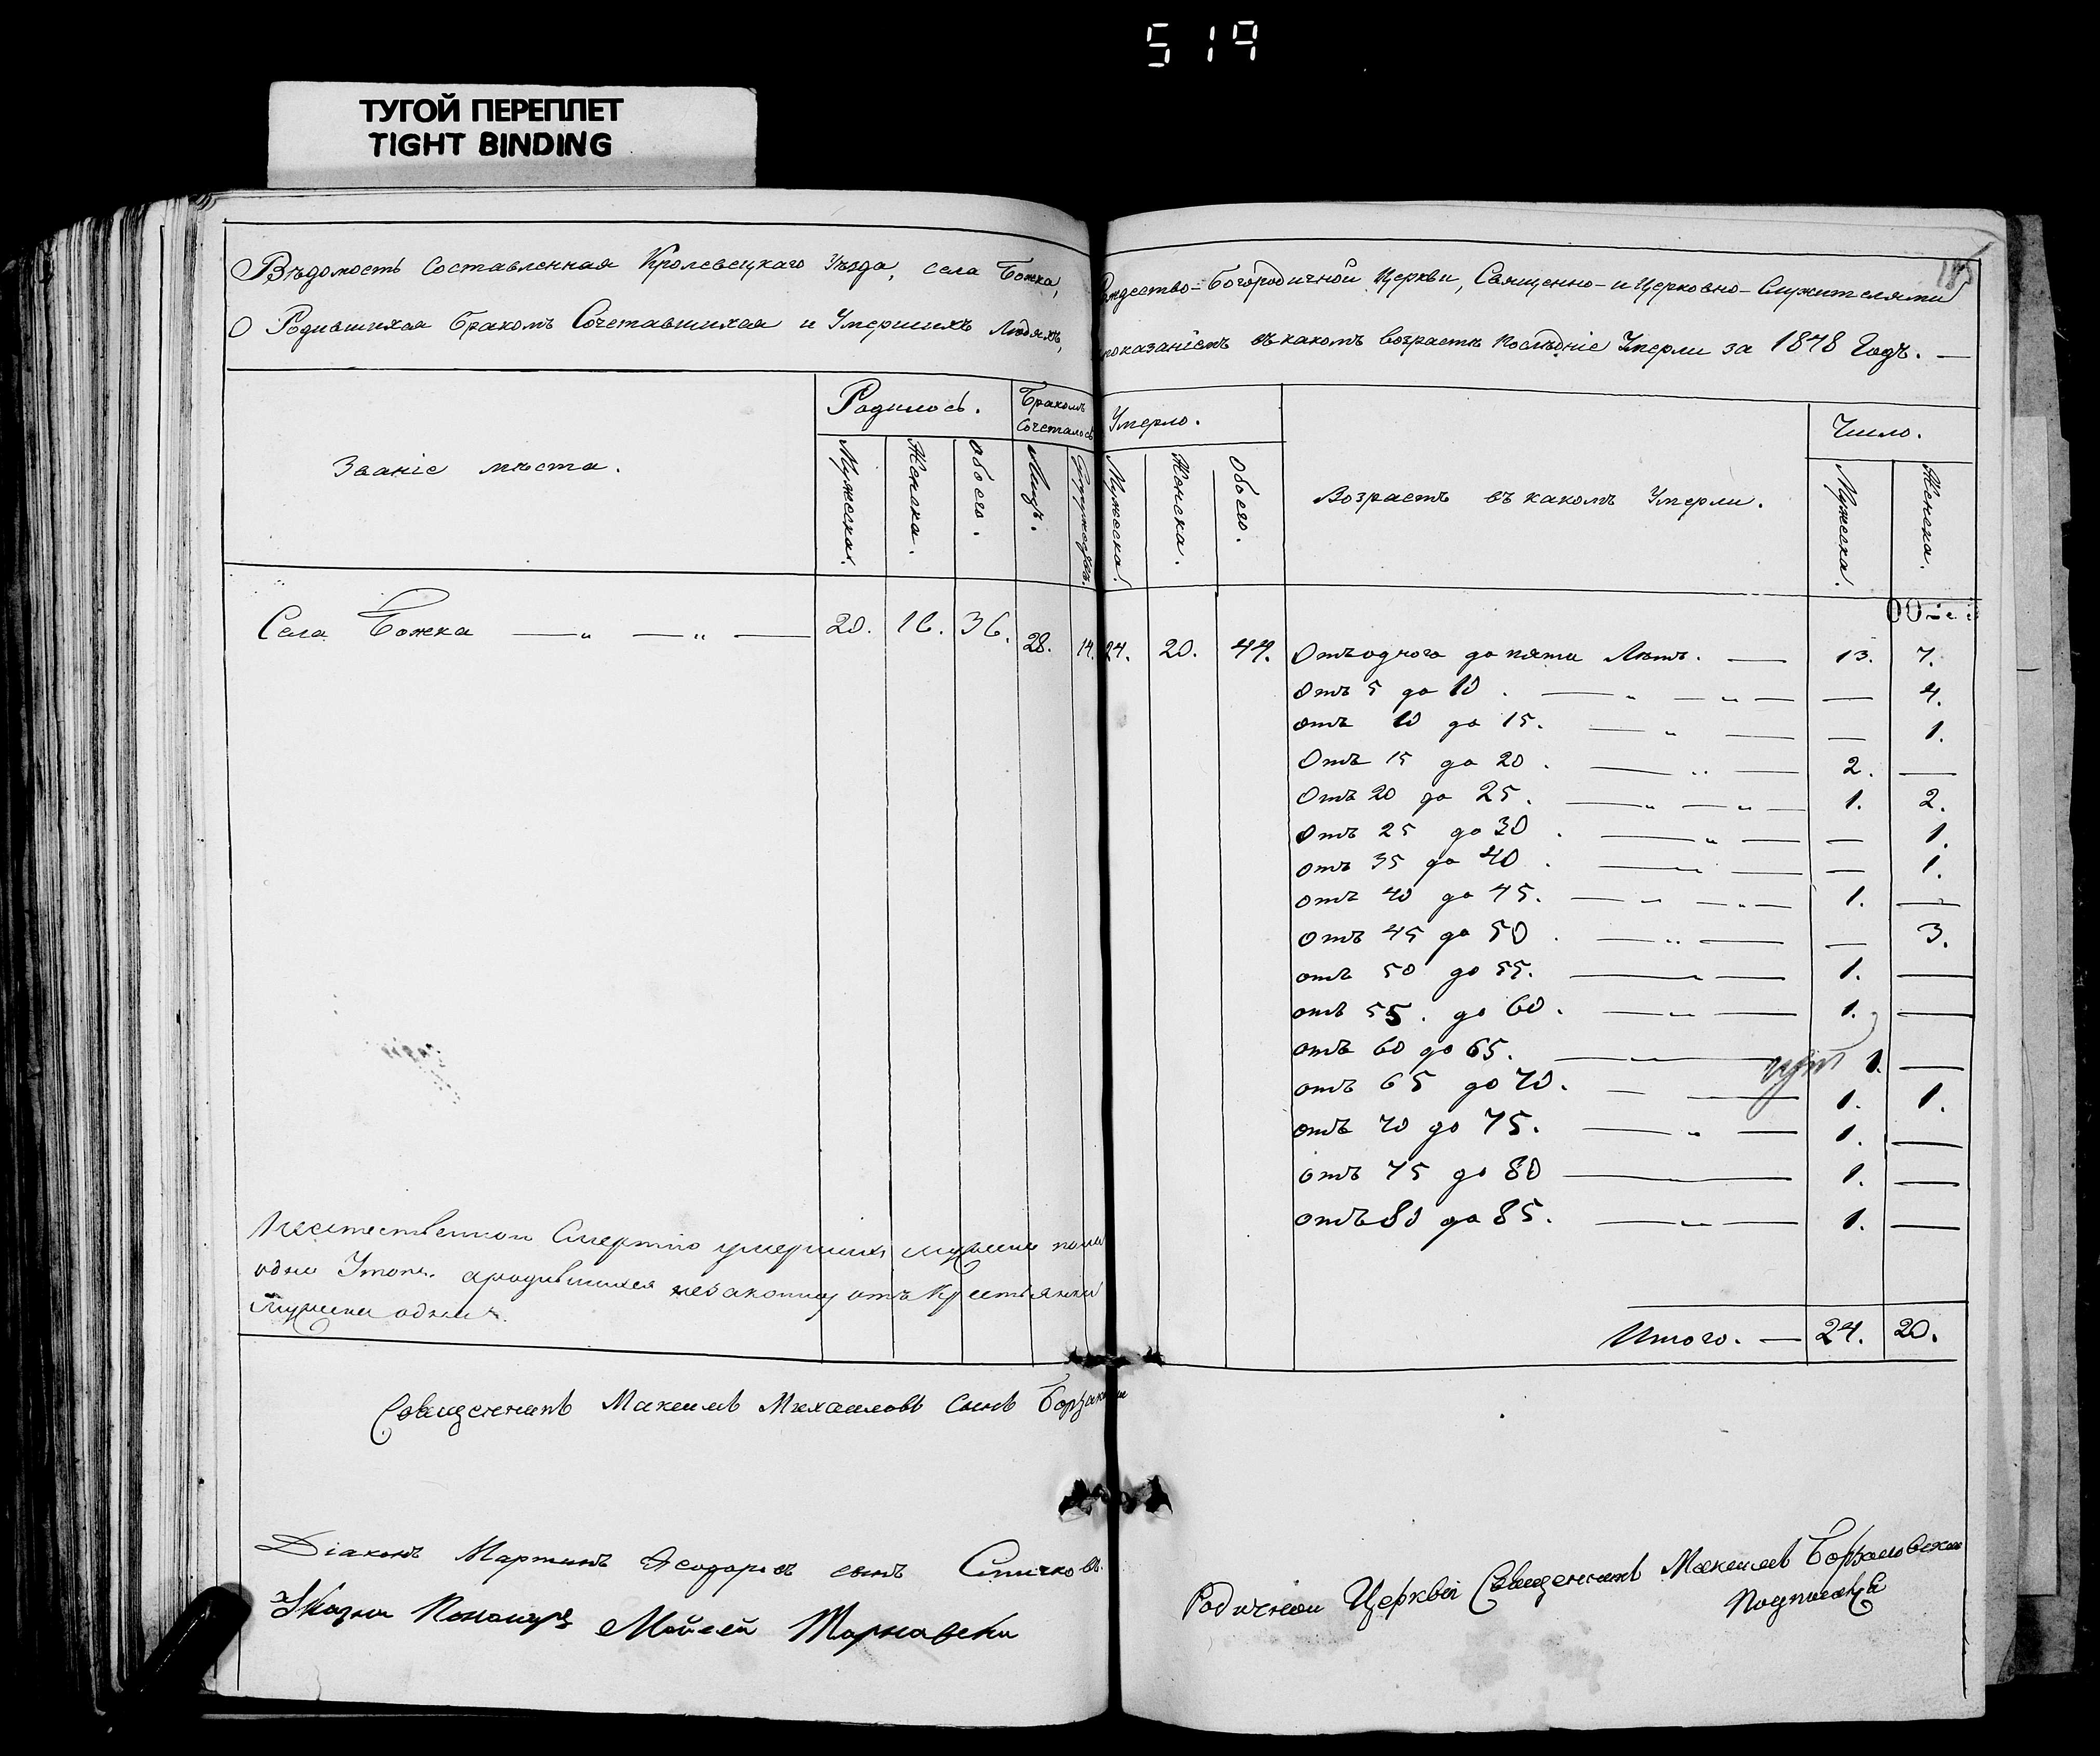 519
ТУГОЙ ПЕРЕПЛЕТ
TIGHT BINDING
Вѣдомость Составленная Кролевецкаго Уѣзда, села Божка, Рождество-Богородичной Церкви, Священно- и Церковно-Служителями
О Родившихся Бракомъ Сочетавшихся и Умершихъ Людяхъ, показаніемъ въ какомъ возрастѣ послѣдніе Умерли за 1848 Годъ. —
Званіе мѣста.
Родилось.
Мужеска.
Женска.
Обоего.
Бракомъ
Сочеталось
Лицъ.
Супружествъ.
Умерло.
Мужеска.
Женска.
Обоего.
Возрастъ въ какомъ Умерли.
Число.
Мужеска.
Женска.
Села Божка — „ — „ — 20. 16. 36. 28. 14. 24. 20. 44.
Отъ одного до пяти Лѣтъ. — 13. 7.
Отъ 5 до 10 . — „ — „ — — 4.
отъ 10 до 15. — „ — — 1.
Отъ 15 до 20 . — „ — 2. —
Отъ 20 до 25. — „ — „ — 1. 2.
Отъ 25 до 30 . — „ — — 1.
отъ 35 до 40 . — „ — — 1.
отъ 40 до 45. — „ — „ — 1. —
отъ 45 до 50 . — „ — — 3.
отъ 50 до 55. — „ — 1. —
отъ 55. до 60. — „ — 1. —
отъ 60 до 65. — „ — 1. —
отъ 65 до 70. — — 1. 1.
отъ 70 до 75. — „ — 1. —
отъ 75 до 80 — 1. —
отъ 80 до 85. — „ — 1. —
Итого. — 24. 20.
Смертію умершихъ
одни
одинъ.
Священникъ Максимъ Михаиловъ сынъ
Діаконъ Мартинъ Ѳеодоровъ сынъ
Пономарь Мойсей Тарнавски
Родичной Церкви Священникъ Максимъ